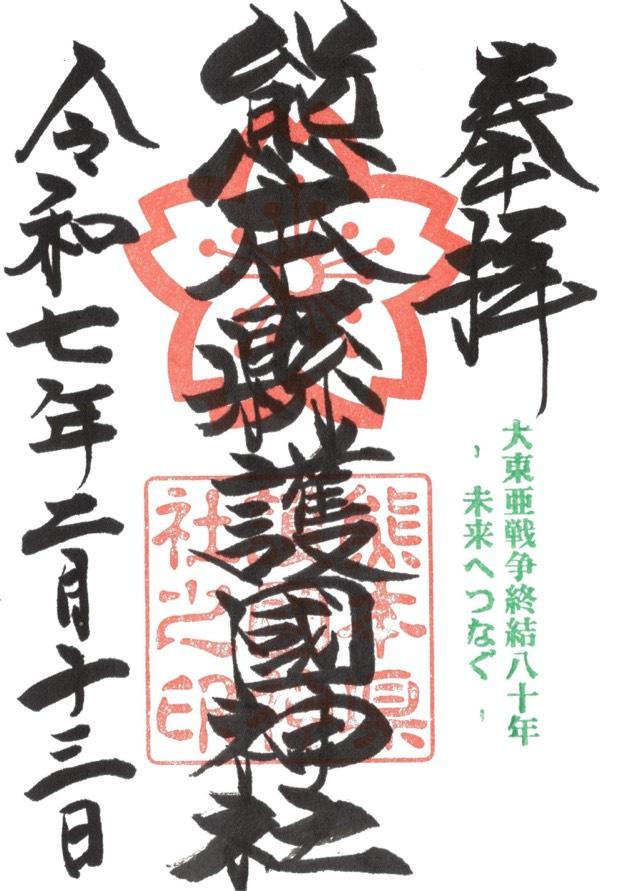 奉拝
大東亜戦争終結八十年
- 未来へつなぐ -
熊本縣護國神社
熊本県
護國神
社之印
令和七年二月十三日